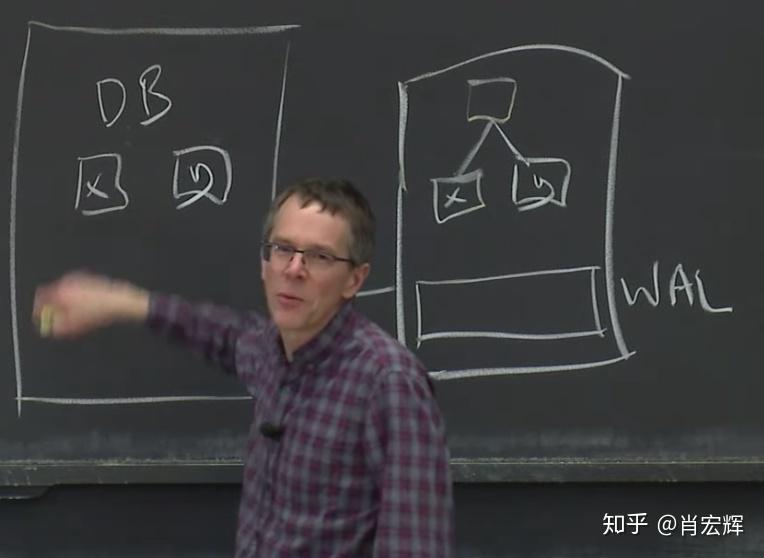 DB
x y
x y
WAL
知乎 @肖宏辉